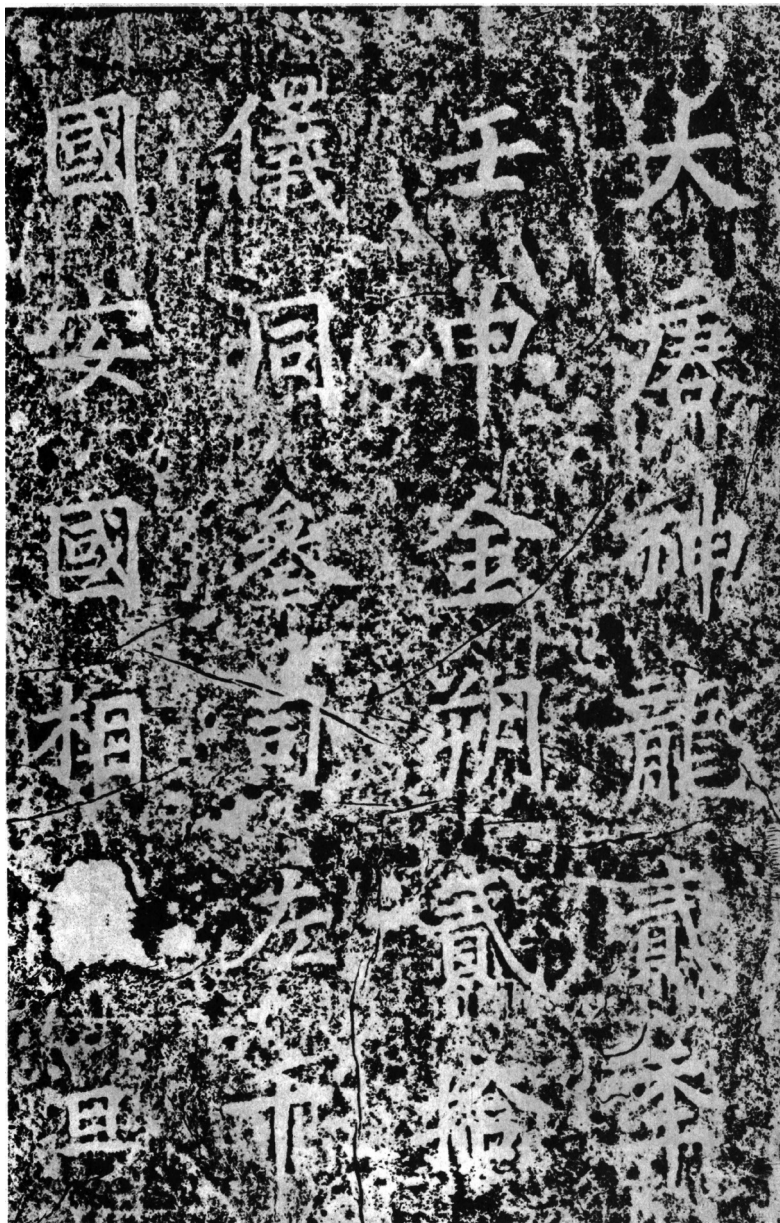 大唐神龍貳秊
壬申金朔貳拾
儀同叁司左千
國安國相旦